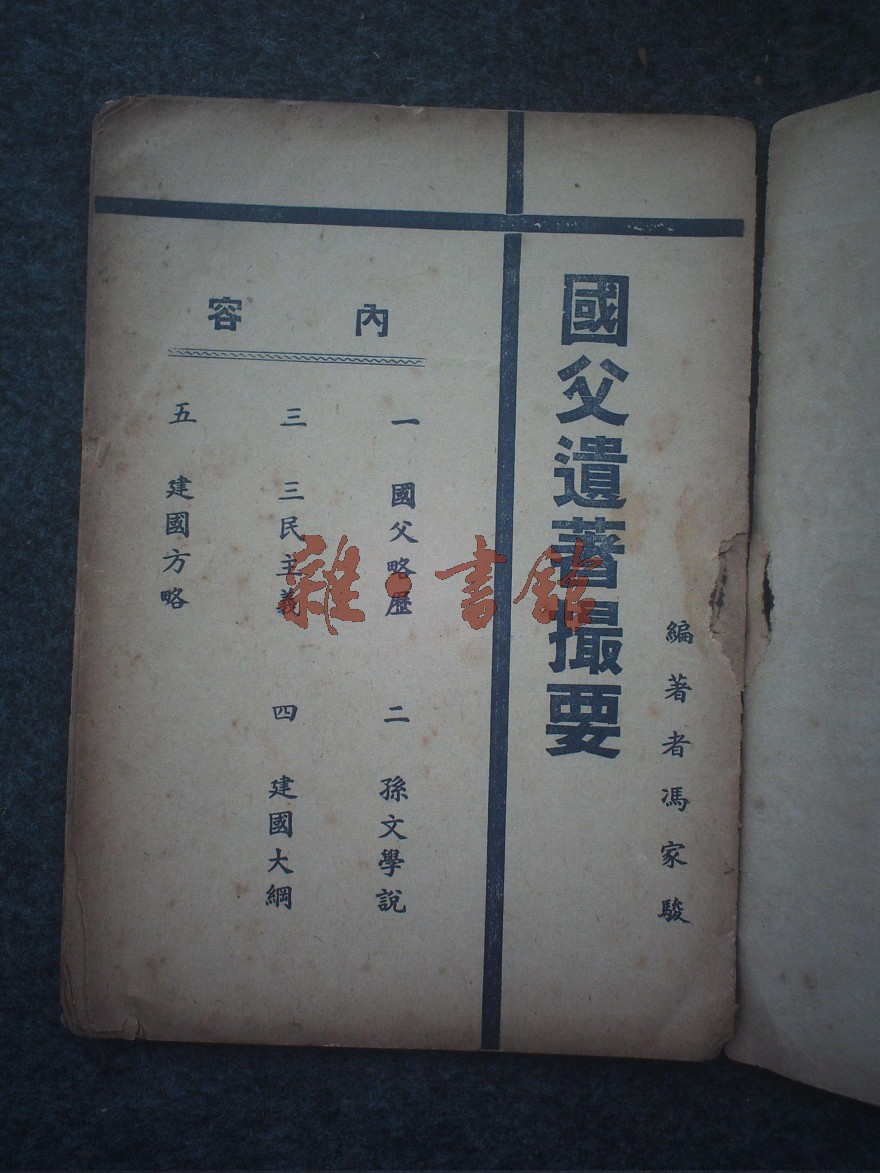 編著者馮家駿
國父遺著撮要
內容
一 國父略歷
二 孫文學說
三 三民主義
四 建國大綱
五 建國方略
雜·書館